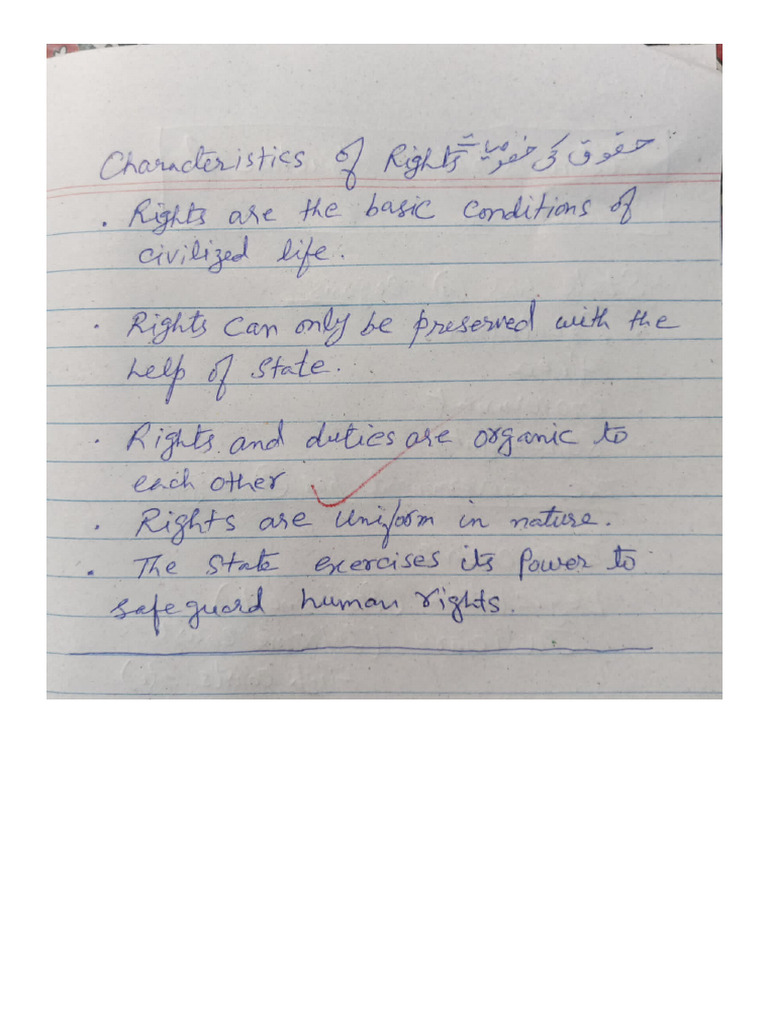 Characteristics of Rights حقوق کی خصوصیات
. Rights are the basic conditions of
civilized life.
. Rights can only be preserved with the
help of state.
. Rights and duties are organic to
each other
. Rights are uniform in nature.
. The state exercises its power to
safeguard human rights.